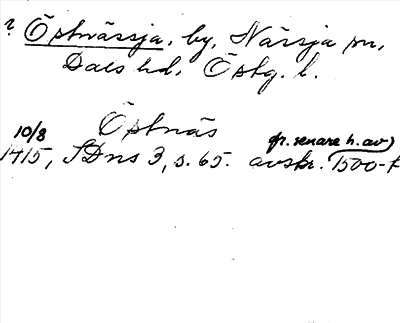 ? Östnässja, by, Nässja sn,
Dals hd, Östg. l.
Östnäs
10/8 fr. senare h. av)
1415, SDns 3, s. 65. avskr. 1500-t